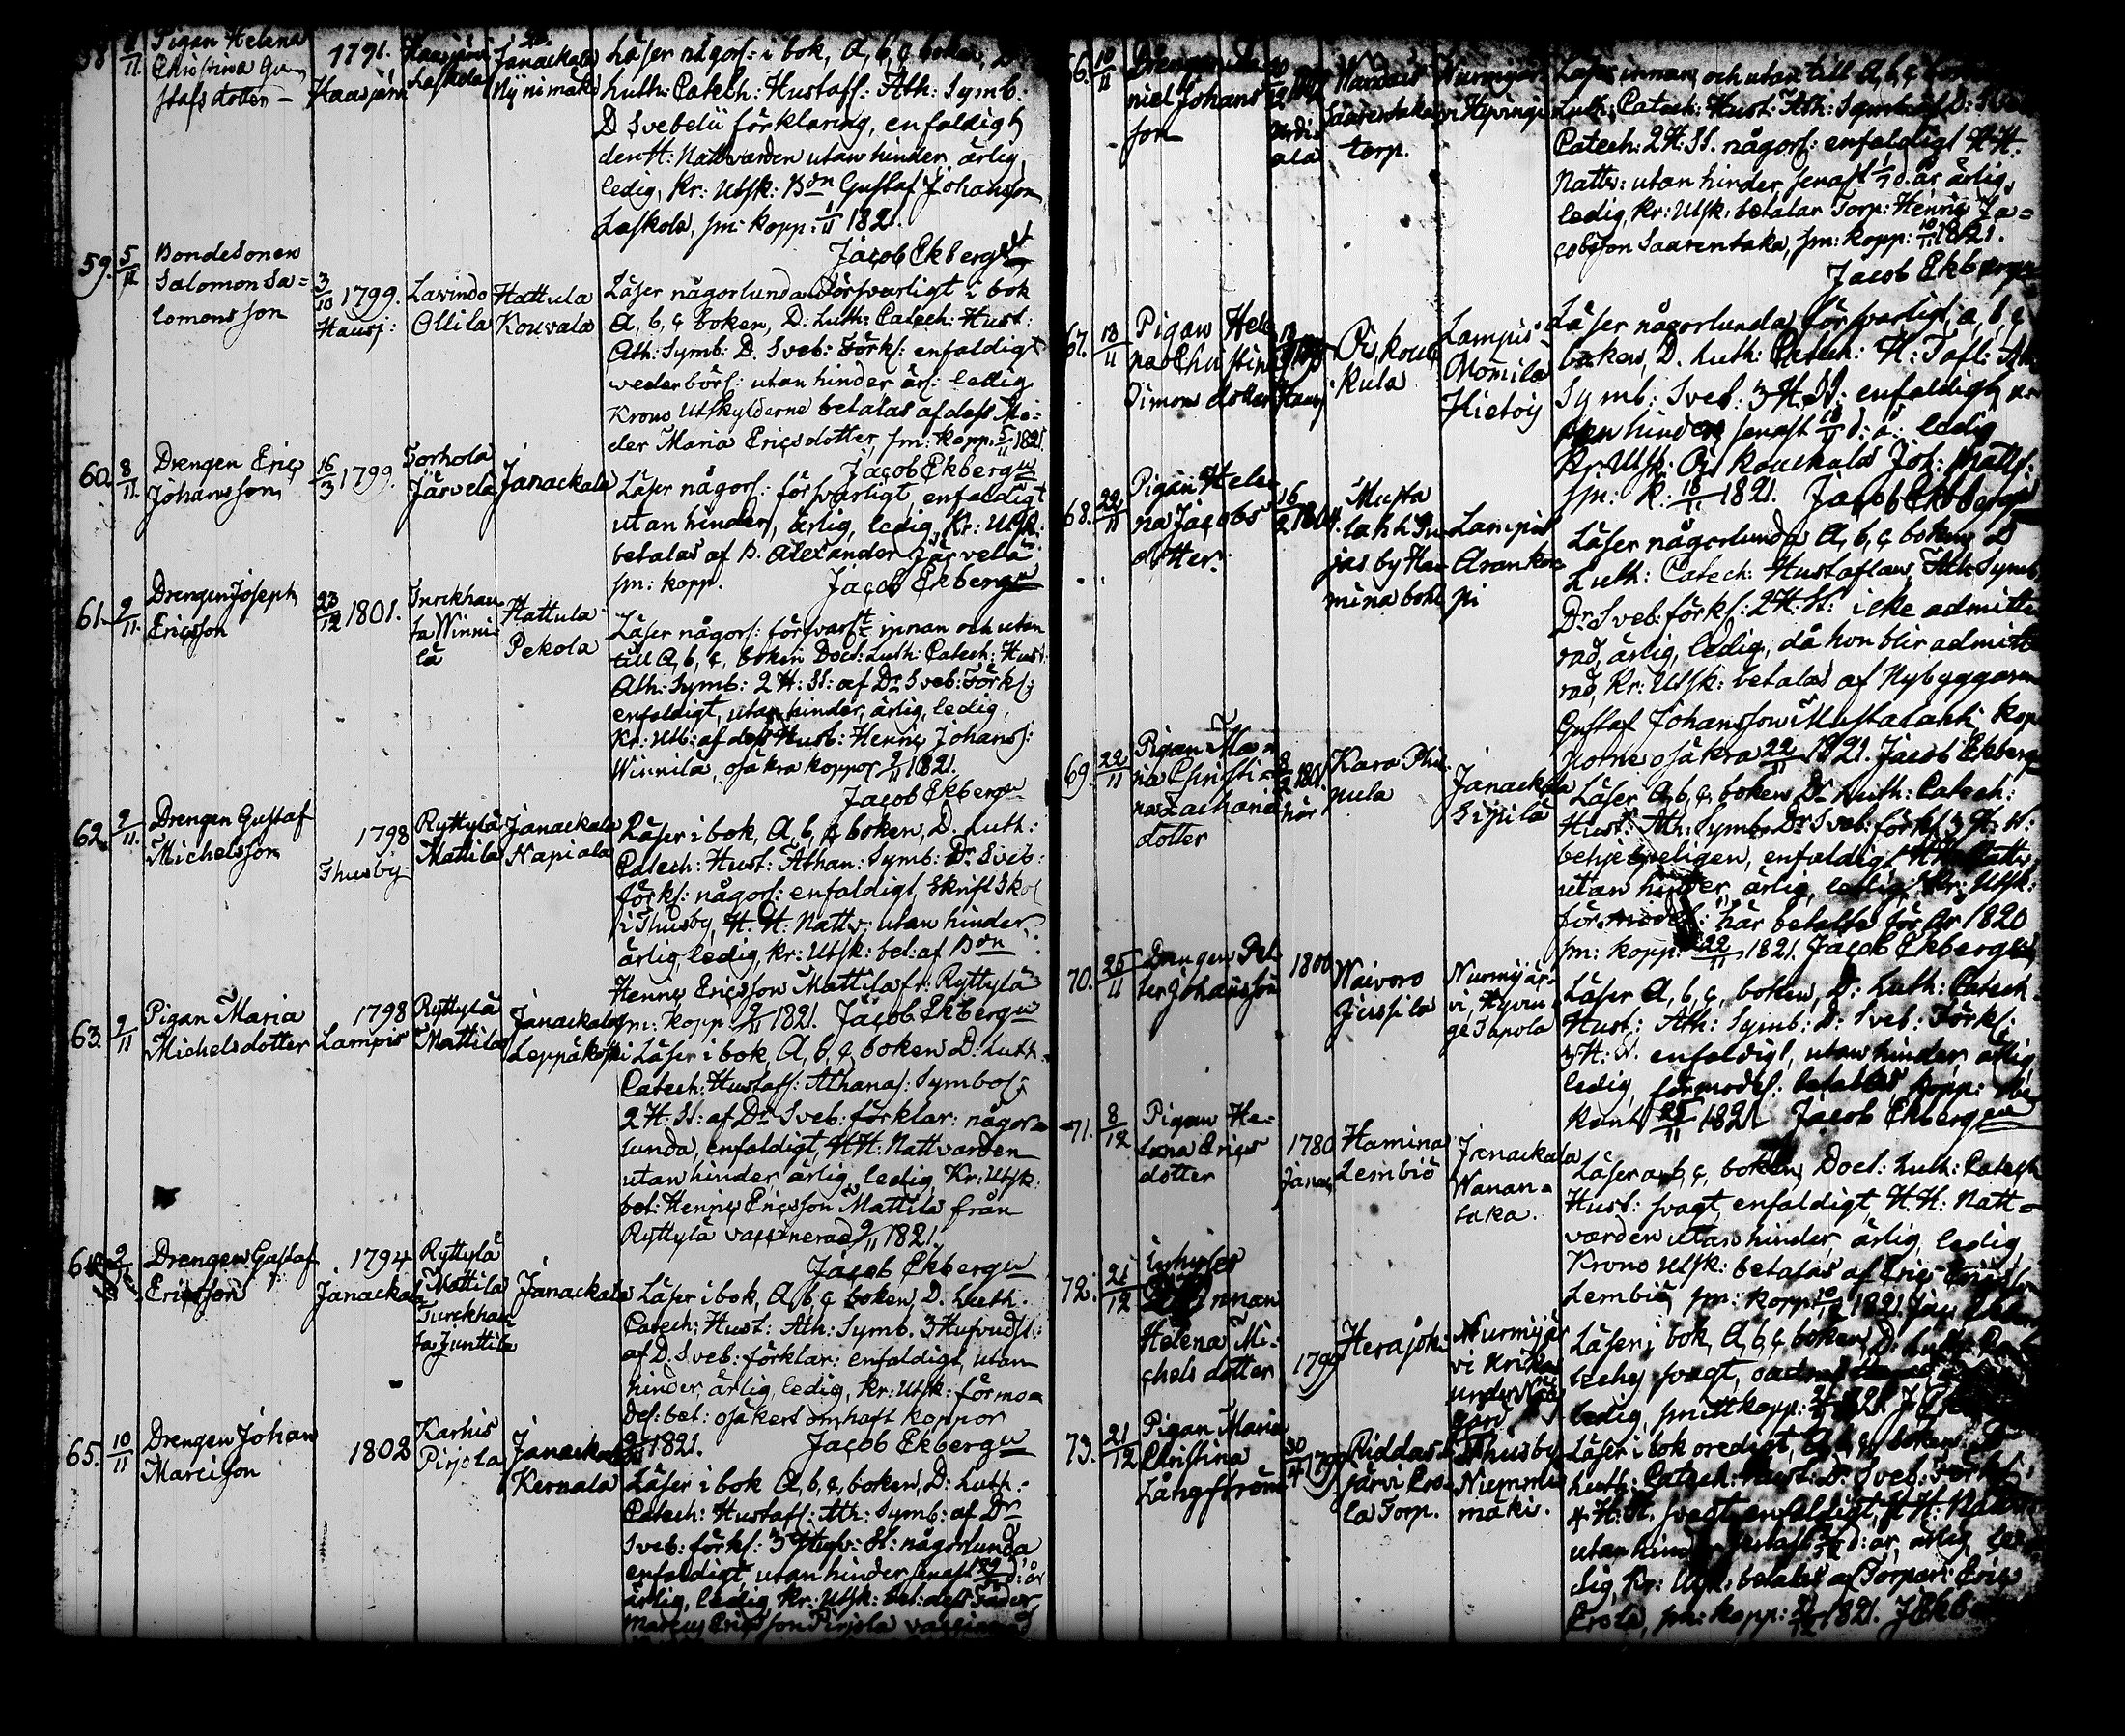 58. 1/11. Pigan Helena Christina Gustafs dotter – 1791. Haasjärvi Haasjärvi Laskola Janackala Nynimäki
Läser någorl: i bok, A, b, ç boken, D
Luth: Catech: Hustafl: Ath: Symb:
D Svebelii förklaring, enfaldigt
den H: Nattvarden utan hinder ärlig,
ledig, Kr: Utsk: Bdn Gustaf Johansson
Laskola, sm: kopp: 1/11 1821.
Jacob Ekberg
59. 5/11 Bondesonen Salomon Salomons son 3/10 1799. Hausj: Lavindo Ollila Hattula Kouvala
Läser någorlunda försvarligt i bok
A, b, ç boken, D: Luth: Catech: Hust:
Ath: Symb: D. Sveb: Förkl: enfaldigt
vederbörl: utan hinder ärl: ledig
Krono Utskylderne betalas af dess Mo-
der Maria Ericsdotter, sm: kopp. 5/11 1821
Jacob Ekberg
60. 8/11. Drengen Eriç Johansson 16/3 1799. Torhola Järvelä Janackala
Läser någorl: försvarligt, enfaldigt
utan hinder, ärlig, ledig, Kr: Utsk:
betalas af B. Alexander Järvelä
sm: kopp. Jacob Ekberg
61. 9/11. Drengen Joseph Ericsson 23/12 1801. Turckhauta Winnilä Hattula Pekola
Läser någorl: försvarlt innan och utan
till A, b, ç, boken Doct: Luth: Catech: Hust:
Ath: Symb: 2 H: St: af Dr Sveb: Förkl:
enfaldigt, utan hinder, ärlig, ledig,
Kr: Utb: af dess Husb: Henriç Johans:
Winnila, osäkra koppor 9/11 1821.
Jacob Ekberg
62. 9/11. Drengen Gustaf Michelsson 1798 Thusby Ryttylä Mattila Janackala Napiala
Läser i bok, A, b, ç boken, D. Luth:
Catech: Hust: Athan: Symb: Dr Sveb:
förkl: någorl: enfaldigt, Skriftskol
i Thusby, H. H: Nattv: utan hinder,
ärlig, ledig, Kr: Utsk: bet: af Bdn
Henriç Ericsson Mattila fr: Ryttylä
sm: kopp: 9/11 1821. Jacob Ekberg
63. 9/11 Pigan Maria Michelsdotter 1798 Lampis Ryttylä Mattila Janackala Leppäkoski
Läser i bok, A, b, ç, boken D: Luth:
Catech: Hustafl: Athanas: Symbol:
2 H: St: af Dr Sveb: förklar: någor-
lunda, enfaldigt, H H: Nattvarden
utan hinder, ärlig, ledig, Kr: Utsk:
bet: Henriç Ericsson Mattila från
Ryttylä vaccinerad 9/11 1821.
Jacob Ekberg
64. 9/11 Drengen Gustaf Ericsson 1794 Janackala Ryttylä Mattila Turckhauta Junttila Janackala
Läser i bok, A, b, ç boken, D. Luth:
Catech: Hust: Ath: Symb. 3 Hufvudst:
af D. Sveb: förklar: enfaldigt, utan
hinder, ärlig, ledig, Kr: Utsk: förmo-
del: bet: osäkert om haft koppor
9/11 1821. Jacob Ekberg
65. 10/11 Drengen Johan Marcisson 1802 Karhis Pirjola Janackala Kernala
Läser i bok A, b, ç, boken, D: Luth:
Catech: Hustafl: Ath: Symb: af Dr
Sveb: förkl: 3 Hufv: St: någorlunda
enfaldigt, utan hinder senast d: år
ärlig, ledig, Kr: Utsk: bet: dess Fader
Marcus Ericsson Pirjola
66. 10/11 Drengen Daniel Johansson torp. Hyvinge
Läser innan och utan till A, b, ç
Luth: Catech: Hust: Ath: Symb: af D: Sveb
Catech: 2 H: St. någorl: enfaldigt H H:
Nattv: utan hinder senast 1/7 d. år ärlig,
ledig, Kr: Utsk: betalar Torp: Henriç Ja-
cobsson Saarentaka, sm: kopp: 10/11 1821.
Jacob Ekberg
67. 18/11 Pigan Helena Christina Simonsdotter Lampis Momila Hietoij
Läser någorlunda försvarligt, a, b, ç
boken, D. Luth: Catech: H: Tafl: Ath
Symb: Sveb: 3 H. St: enfaldigt,
utan hinder senast 18/11 d: å: ledig
Kr: Utsk: Joh: Matts:
sm: K: 18/11 1821. Jacob Ekberg
68. 22/11 Pigan Helena Jacobsdotter 16/2 1804. Mustalahti by Hamina bohl Lampis
Läser någorlunda A, b, ç boken D
Luth: Catech: Hustaflan, Ath: Symb
Dr Sveb: förkl: 2 H: St: icke admitte
rad, ärlig, ledig, då hon blir admitte
rad, Kr: Utsk: betalas af Nybyggaren
Gustaf Johansson Mustalahti kop
porne osäkra 22/11 1821. Jacob Ekberg
69. 22/11 Pigan Maria Christina Zacharie dotter 1801. här Kara Janackala Sipilä
Läser A, b, ç, boken Dr Luth: Catech:
Hust: Ath: Symb: Dr Sveb: förkl 3 H: St:
enfaldigt, H H: Nattv:
utan hinder, ärlig, ledig, Kr: Utsk:
förmodel: här betalte för år 1820
sm: kopp: 22/11 1821. Jacob Ekberg
70. 25/11 Drengen Petter Johansson 1800 Waivoro Jussila Nurmijärvi, Hyvinge Tapola
Läser A, b, ç, boken, D: Luth: Catech:
Hust: Ath: Symb: D: Sveb: Förkl:
3 H: St. enfaldigt, utan hinder, ärlig
ledig, förmodel: betaltes kopp:
25/11 1821. Jacob Ekberg
71. 8/12 Pigan Helena Erics dotter 1780 Janac Hamina Lembiö Janackala Wanantaka.
Läser a, b, ç, boken, Doct: Luth: Catech
Hust: svagt, enfaldigt, H. H: Natt-
varden utan hinder, ärlig, ledig,
Krono Utsk: betalas af Eriç
Lembiö, sm: kopp: 1821.
72. 21/12 Inhyses Helena Michels dotter 1799 Herajoki Nurmijärvi
Läser i bok, A, b, ç boken, D: Luth:
svagt,
ledig, smittkopp: 1821.
73. 21/12 Pigan Maria Christina Långström 30/4 Riddasjärvi Erola Torp. Thusby
Läser i bok oredigt, A, b, ç boken D
Luth: Catech: Hust: Dr Sveb: Förkl:
4. H. St. svagt, enfaldigt, H. H: Nattv
utan hinder senast d: år, ärlig, le-
dig, Kr: Utsk: betalas af Torpar: Eriç
Erola, sm: kopp: 21/12 1821. J Ekberg